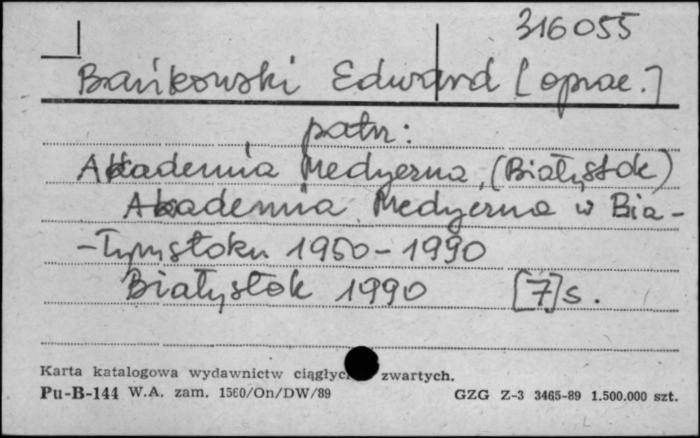 316055
Bańkowski Edward [oprac.]
patrz:
Akademia Medyczna (Białystok)
Akademia Medyczna w Bia-
-łymstoku 1950-1990
Białystok 1990 [7]s.
Karta katalogowa wydawnictw zwartych.
Pu-B-144 W.A. zam. 1560/On/DW/89 GZG Z-3 3465-89 1.500.000 szt.